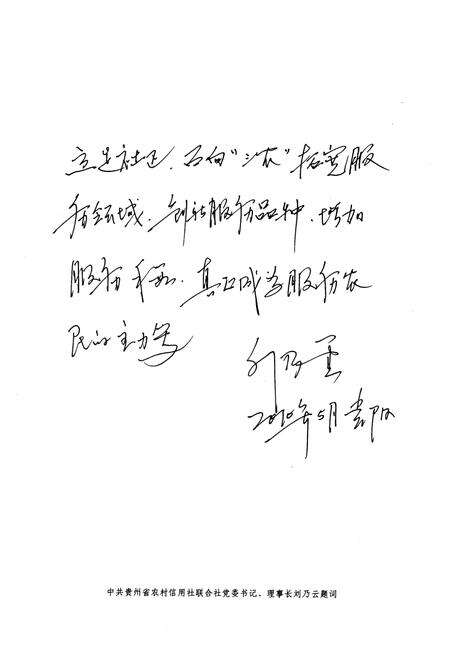 立足社区、面向“三农”拓宽服
务领域、创新服务品种、增加
服务手段、真正成为服务农
民的主力军
刘乃云
2010年5月 贵阳
中共贵州省农村信用社联合社党委书记、理事长刘乃云题词